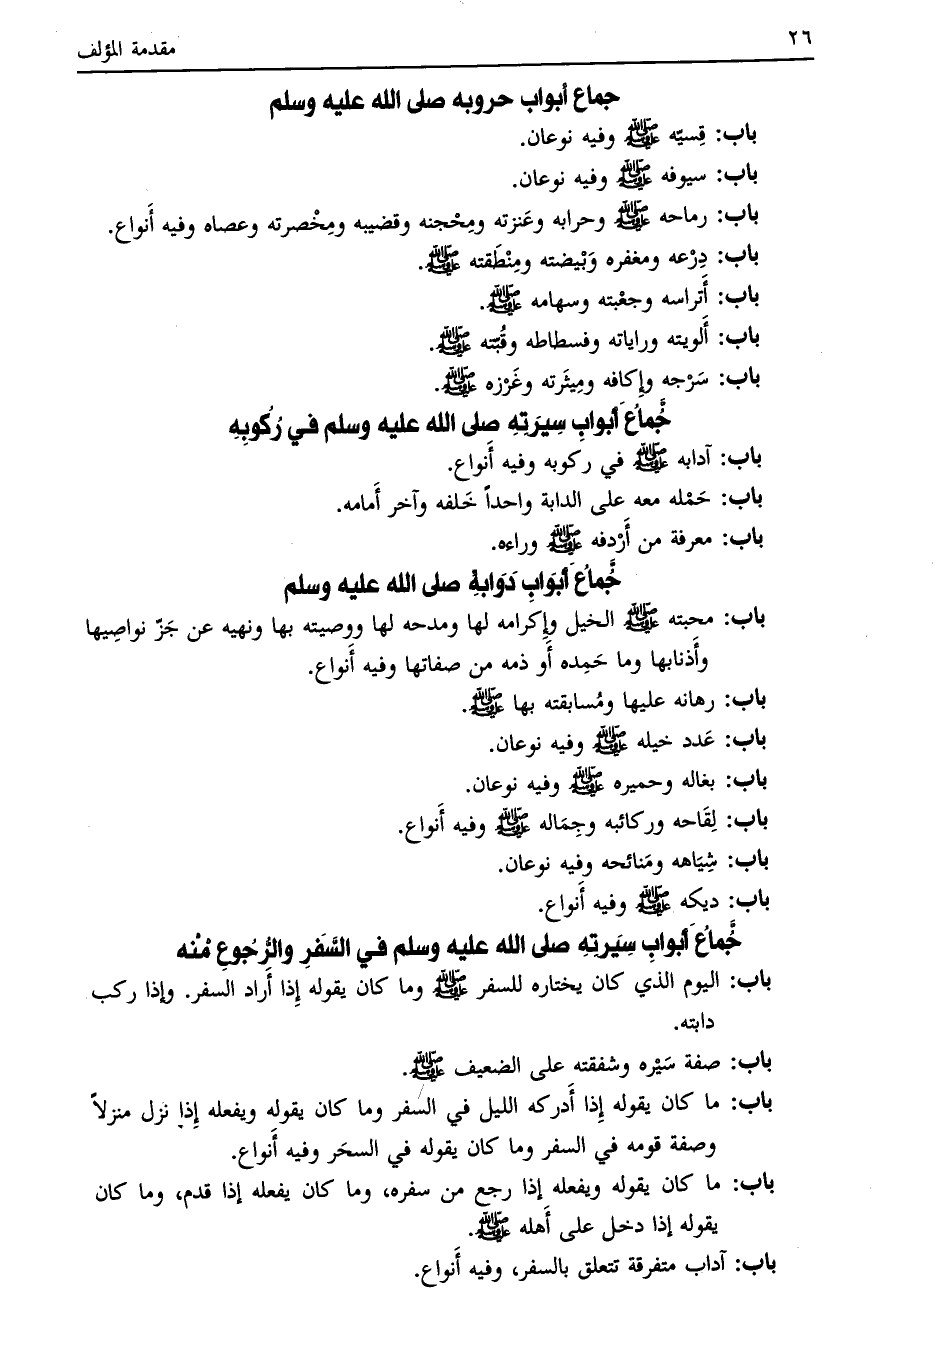 ٢٦
مقدمة المؤلف
جماع أبواب حروبه صلى الله عليه وسلم
باب: قِسيّه ﷺ وفيه نوعان.
باب: سيوفه ﷺ وفيه نوعان.
باب: رماحه ﷺ وحرابه وعَنزته ومِحْجنه وقضيبه ومِخْصرته وعصاه وفيه أَنواع.
باب: دِرْعه ومغفره وَبْيضته ومِنْطَقته ﷺ.
باب: أَتراسه وجعْبته وسهامه ﷺ.
باب: أَلويته وراياته وفسطاطه وقُبّته ﷺ.
باب: سَرْجه وإِكافه ومِيثَرته وغَرْزه ﷺ.
جُّماعُ أَبوابِ سِيرَتِهِ صلى الله عليه وسلم في رُكُوبِهِ
باب: آدابه ﷺ في ركوبه وفيه أَنواع.
باب: حَمْله معه على الدابة واحداً خَلفه وآخر أَمامه.
باب: معرفة من أَرْدفه ﷺ وراءه.
جُّماعُ أَبوَابِ دَوَابهِّ صلى الله عليه وسلم
باب: محبته ﷺ الخيل وإِكرامه لها ومدحه لها ووصيته بها ونهيه عن جَزّ نواصِيها
وأَذنابها وما حَمِده أَو ذمه من صفاتها وفيه أَنواع.
باب: رهانه عليها ومُسابقته بها ﷺ.
باب: عَدد خيله ﷺ وفيه نوعان.
باب: بغاله وحميره ﷺ وفيه نوعان.
باب: لِقَاحه وركائبه وجِمَاله ﷺ وفيه أَنواع.
باب: شِيَاهه ومَنائحه وفيه نوعان.
باب: ديكه ﷺ وفيه أَنواع.
جُّماعُ أَبوابِ سِيَرتِهِ صلى الله عليه وسلم في السَّفَرِ والرُّجُوعِ مُنْه
باب: اليوم الذي كان يختاره للسفر ﷺ وما كان يقوله إِذا أَراد السفر. وإِذا ركب
دابته.
باب: صفة سَيْره وشفقته على الضعيف ﷺ.
باب: ما كان يقوله إِذا أَدركه الليل في السفر وما كان يقوله ويفعله إِذا نزل منزلاً
وصفة قومه في السفر وما كان يقوله في السحَر وفيه أَنواع.
باب: ما كان يقوله ويفعله إذا رجع من سفره، وما كان يفعله إذا قدم، وما كان
يقوله إذا دخل على أَهله ﷺ.
باب: آداب متفرقة تتعلق بالسفر، وفيه أَنواع.